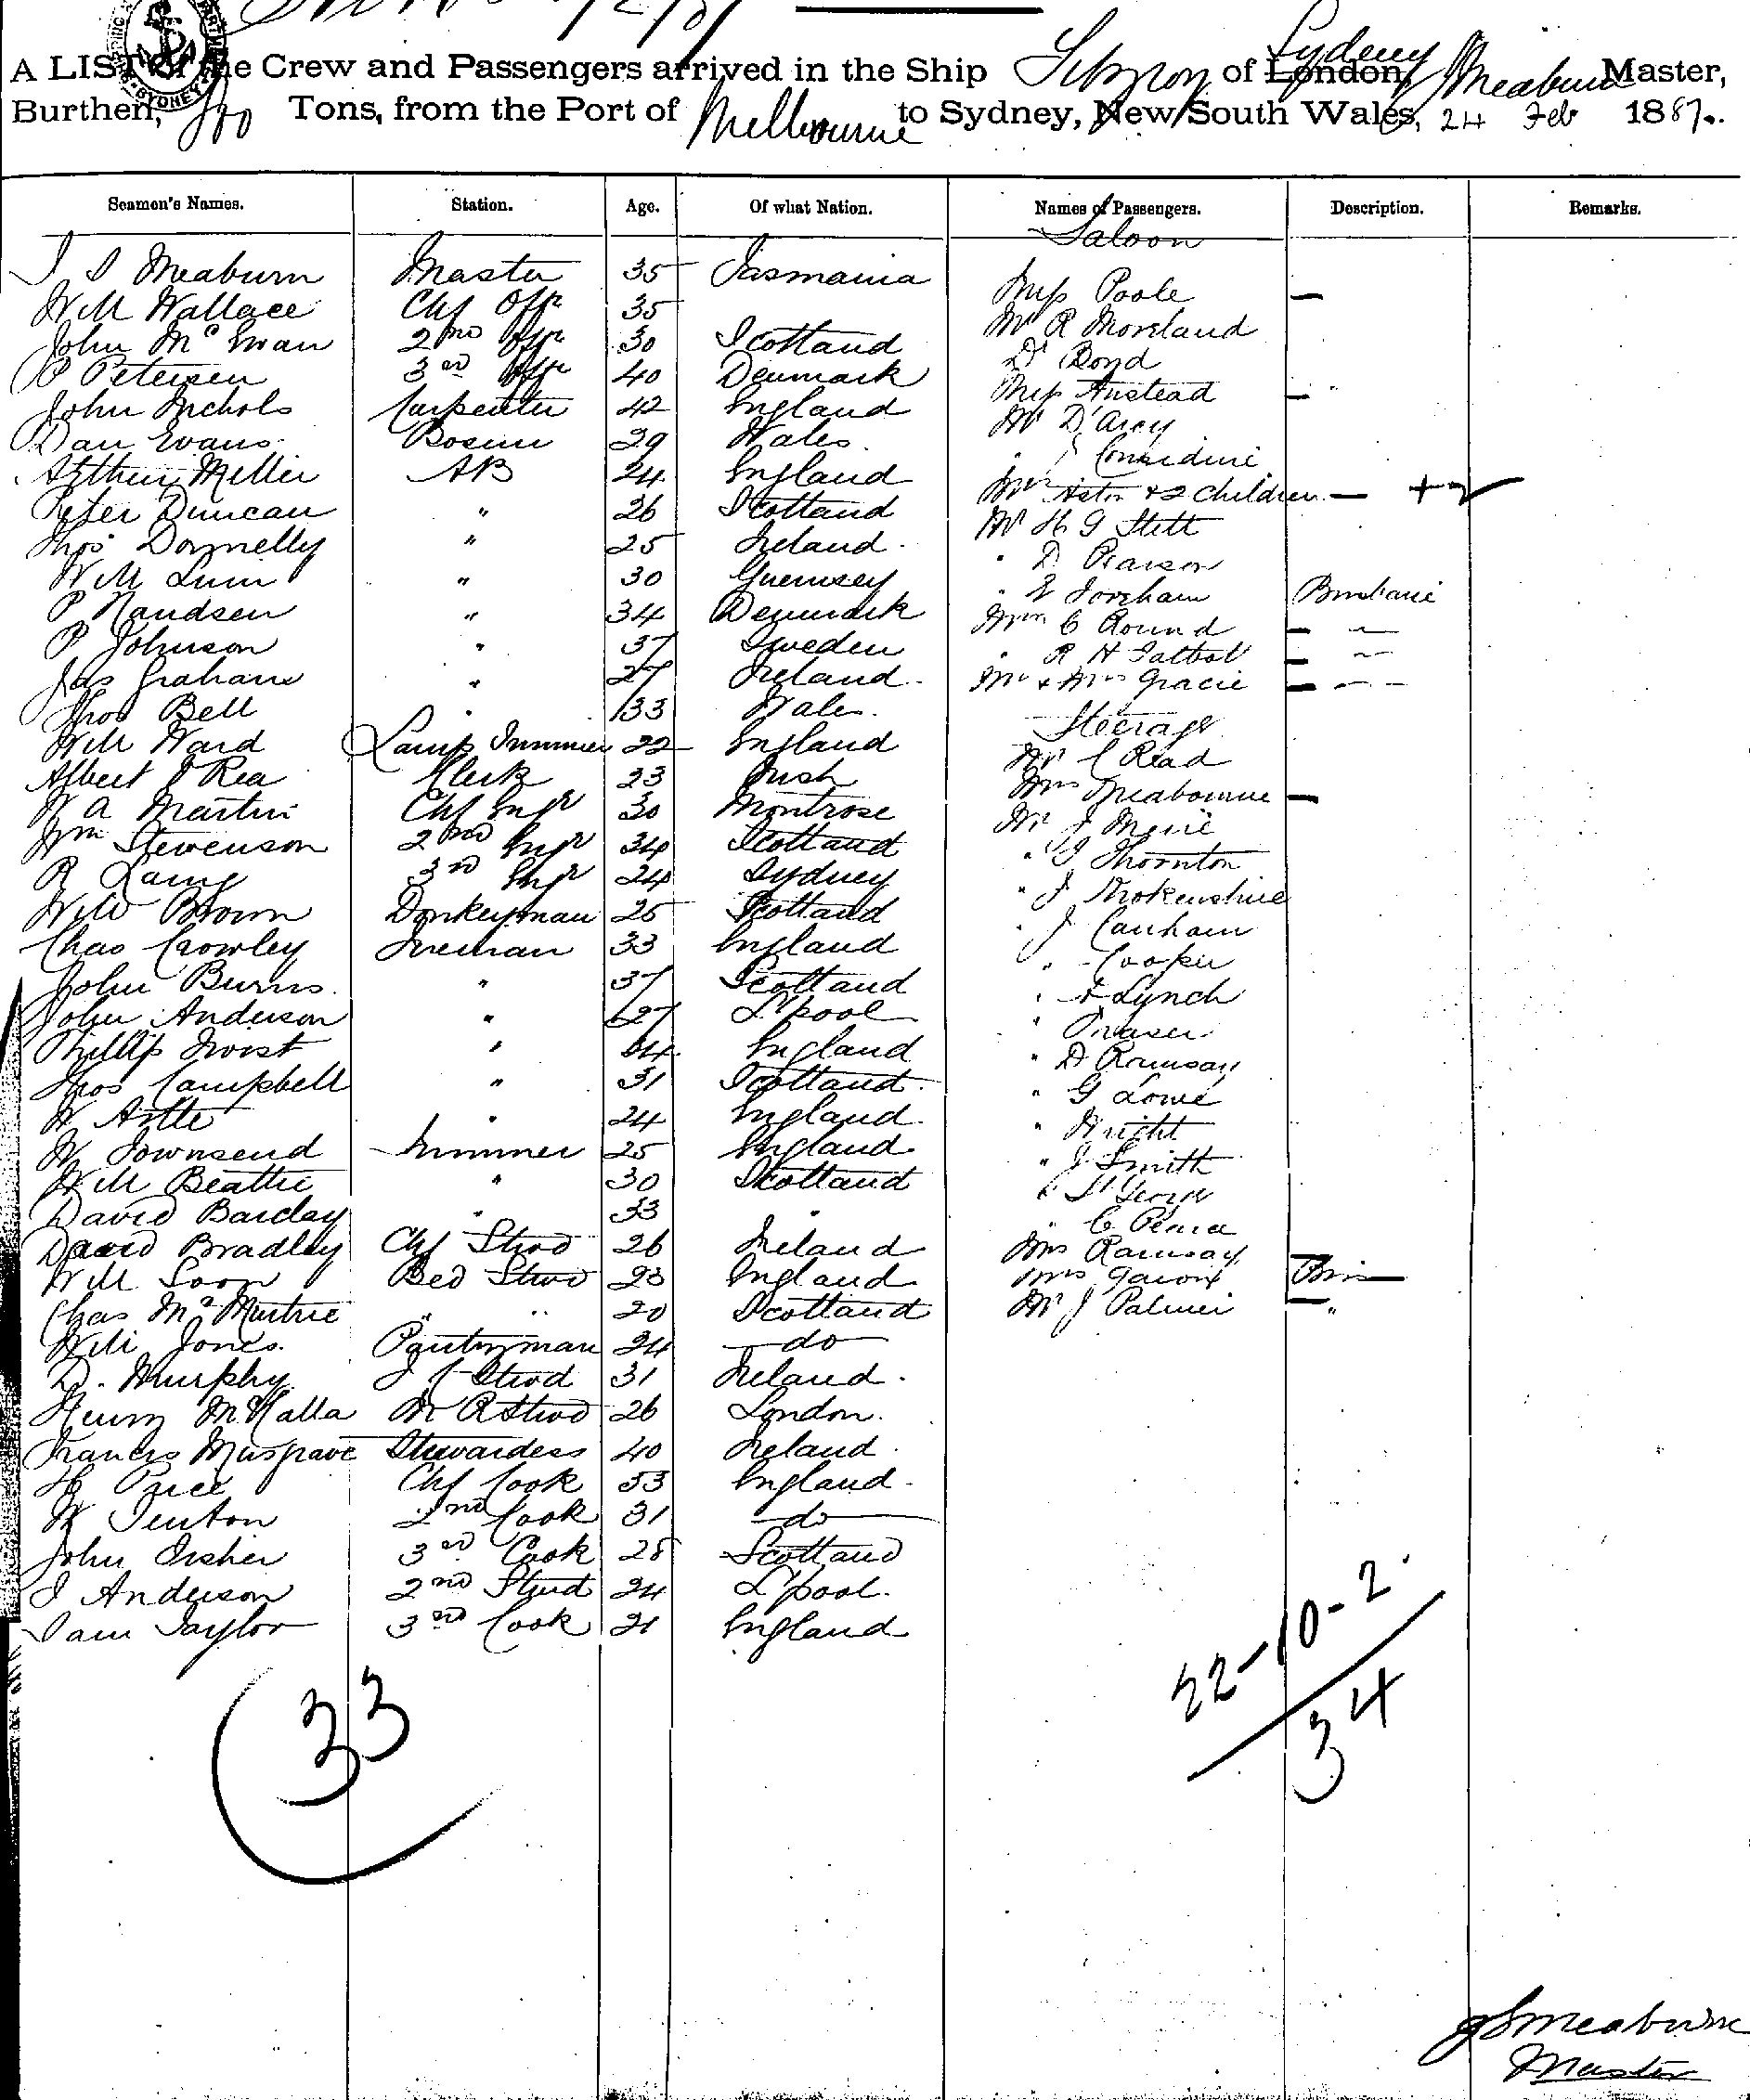 A LIST of the Crew and Passengers arrived in the Ship of London, Sydney Meaburn Master,
Burthen, Tons, from the Port of Melbourne to Sydney, New South Wales, 24 Feb 1887.
Seamen's Names. Station. Age. Of what Nation. Names of Passengers. Description. Remarks.
Saloon
J S Meaburn Master 35 Tasmania
Miss Poole —
Will Wallace Chf Offr 35
Mr R Moreland
John McEwan 2nd Offr 30 Scotland
Dr Boyd
P Petersen 3rd Offr 40 Denmark
Miss Anstead — "
John Nichols Carpenter 42 England
Mr D'Arcy
Dan Evans Bosun 29 Wales
" Considine
Arthur Miller AB 24 England
Mrs Aston & 2 Children — + 2
Peter Duncan " 26 Scotland
Mr H G Stett
Thos Donnelly " 25 Ireland
" D Pearson
Will " 30 Guernsey
" Foreham Brisbane
P Naudsen " 34 Denmark
Mrs C Round — "
P Johnson " 37 Sweden
" R H Talbot — "
Jas Graham " 27 Ireland
Mr & Mrs Gracie — " "
Thos Bell " 33 Wales
Steerage
Will Ward Lamp Trimmer 22 England
Mr C Read
Albert J Rea Clerk 23 Irish
Mrs Meabourne —
W A Martin Chf Engr 30 Montrose
Mr J
Wm Stevenson 2nd Engr 34 Scotland
" J Thornton
R Laing 3rd Engr 24 Sydney
" J Trokenshire
Will Brown Donkeyman 25 Scotland
" J Canham
Chas Crowley Fireman 33 England
" Cooper
John Burns " 37 Scotland
" F Lynch
John Anderson " 27 L'pool
" Fraser
Phillip " 44 England
" D Ramsay
Thos Campbell " 31 Scotland
" G Lowe
W Astle " 24 England
" Wright
W Townsend Trimmer 25 England
" J Smith
Will Beattie " 30 Scotland
" St George
David Barclay " 33 "
" C
David Bradley Chf Stwd 26 Ireland
Mrs Ramsay
Will Soon Bed Stwd 23 England
Mrs Bris
Chas McMurtrie " " 20 Scotland
Mr J Palmer — "
Will Jones Pantryman 24 do
D. Murphy F C Stwd 31 Ireland
Henry McKalla M R Stwd 26 London
Francis Musgrave Stewardess 40 Ireland
H Price Chf Cook 33 England
W Fenton 2nd Cook 31 do
John Fisher 3rd Cook 28 Scotland
J Anderson 2nd Stwd 24 L'pool
Sam Taylor 3rd Cook 21 England
22-10-2
34
33
J S Meaburn
Master